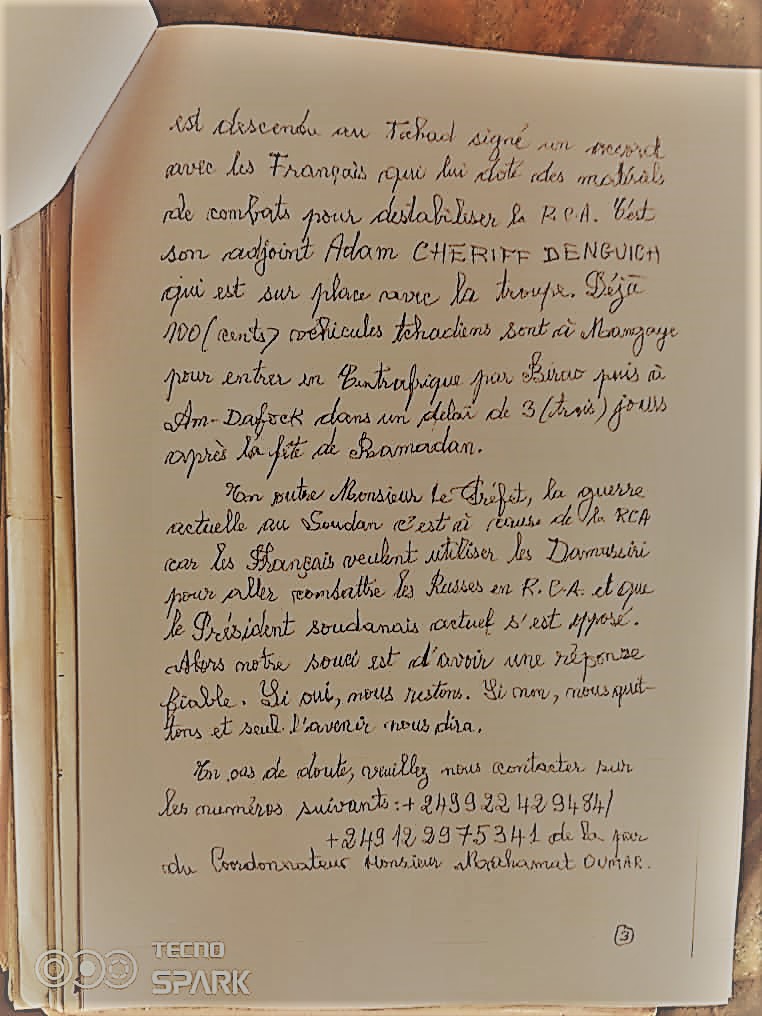 est descendu au Tchad signé un accord
avec les Français qui lui doté des matériels
de combats pour destabiliser la R.C.A. C'est
son adjoint Adam CHERIFF DENGUICH
qui est sur place avec la troupe. Déjà
100 (cents) véhicules tchadiens sont à Mangaye
pour entrer en Centrafrique par Birao puis à
Am-Dafock dans un délai de 3 (trois) jours
après la fête de Ramadan.
En outre Monsieur le Préfet, la guerre
actuelle au Soudan c'est à cause de la RCA
car les Français veulent utiliser les Damussiri
pour aller combattre les Russes en R.C.A. et que
le Président soudanais actuel s'est opposé.
Alors notre souci est d'avoir une réponse
fiable. Si oui, nous restons. Si non, nous quit-
tons et seul l'avenir nous dira.
En cas de doute, veuillez nous contacter sur
les numéros suivants : +249922429484/
+249129975341 de la par
du Coordonnateur Monsieur Mahamat OUMAR.
3
TECNO
SPARK